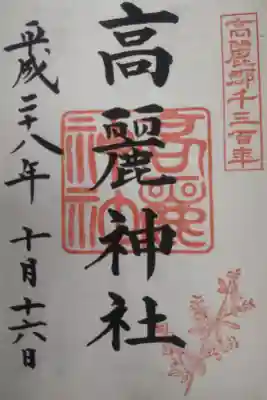 高麗郡千三百年
高麗神社
高麗
神社
平成二十八年 十月十六日